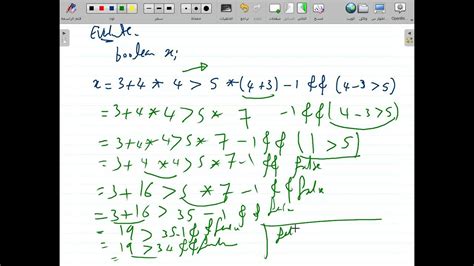 Evaluate
boolean x;
x = 3+4 * 4 > 5 * (4+3) - 1 && (4-3 > 5)
= 3+4 * 4 > 5 * 7 - 1 && (4-3 > 5)
= 3+4 * 4 > 5 * 7 - 1 && (1 > 5)
= 3 + 4 * 4 > 5 * 7 - 1 && false
= 3 + 16 > 5 * 7 - 1 && false
= 3 + 16 > 35 - 1 && false
= 19 > 35 - 1 && false
= 19 > 34 && false
=